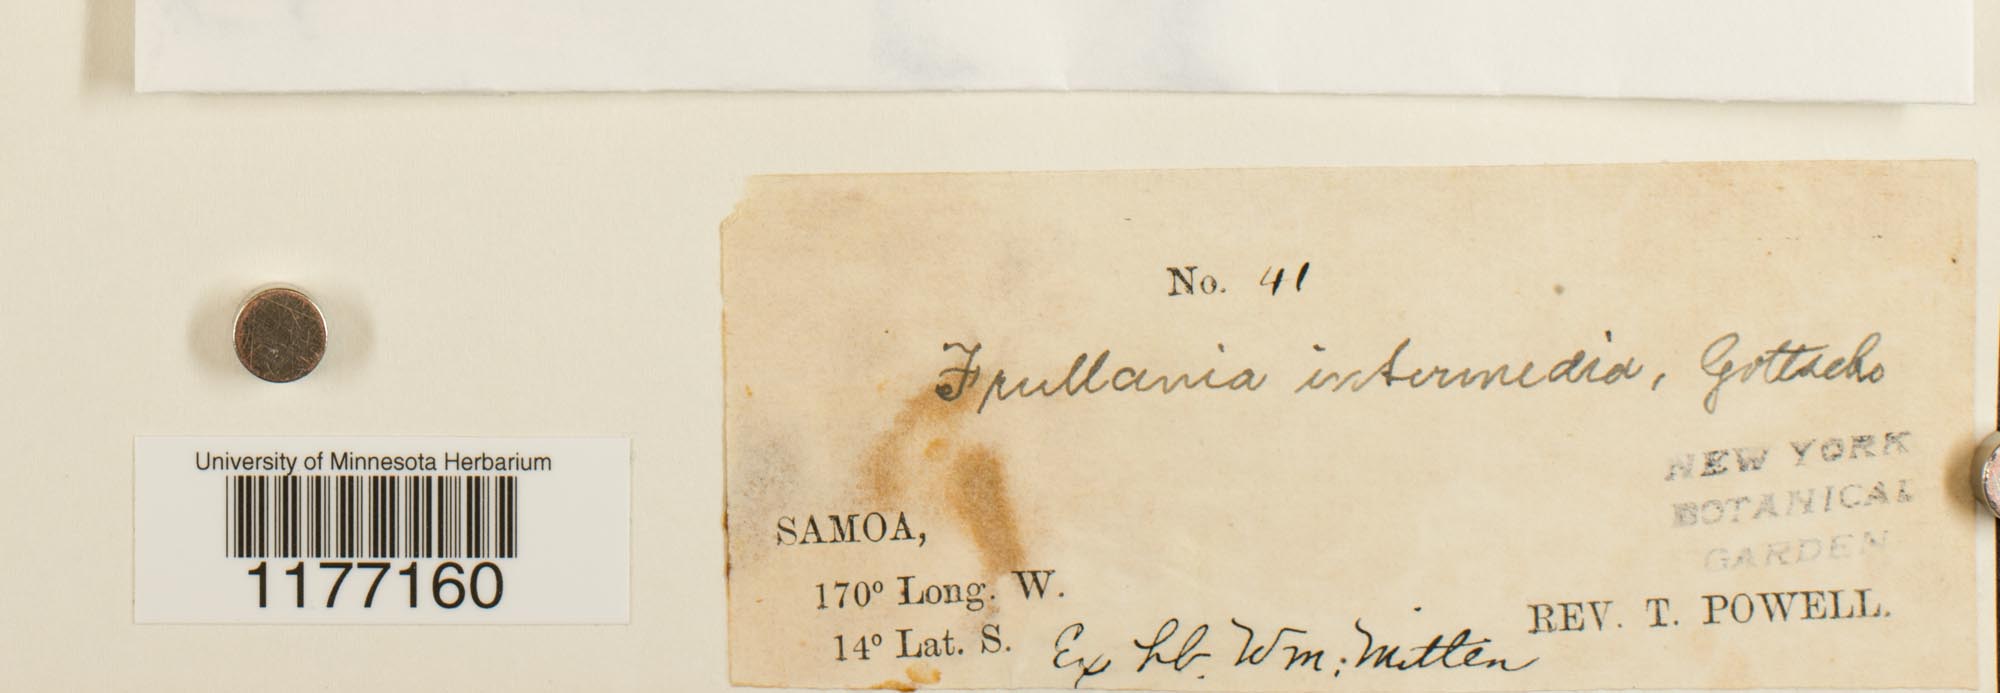 University of Minnesota Herbarium
1177160
No. 41
Frullania intermedia, Gottsche
NEW YORK
BOTANICAL
GARDEN
SAMOA,
170° Long. W.
14° Lat. S.
Ex hb. Wm. Mitten
REV. T. POWELL.